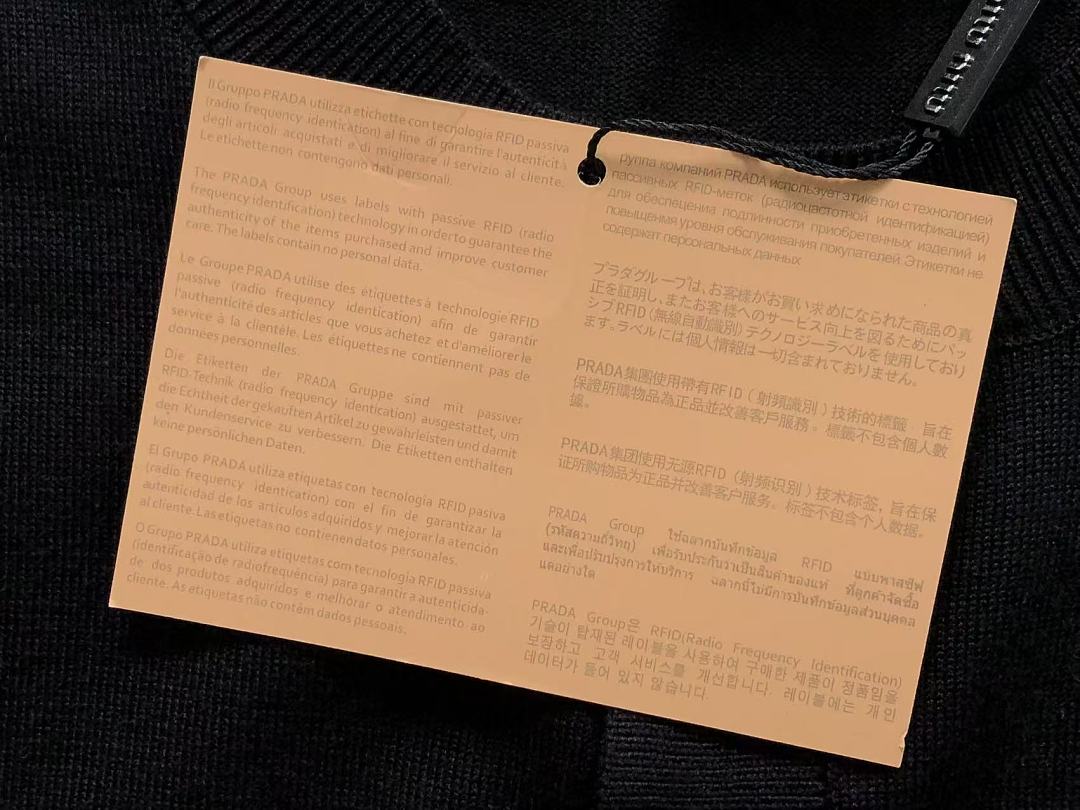 Il Gruppo PRADA utilizza etichette con tecnologia RFID passiva
(radio frequency identication) al fine di garantire l'autenticità
degli articoli acquistati e di migliorare il servizio al cliente.
Le etichette non contengono dati personali.
The PRADA Group uses labels with passive RFID (radio
frequency identification) technology in order to guarantee the
authenticity of the items purchased and improve customer
care. The labels contain no personal data.
Le Groupe PRADA utilise des étiquettes à technologie RFID
passive (radio frequency identication) afin de garantir
l'authenticité des articles que vous achetez et d'améliorer le
service à la clientèle. Les étiquettes ne contiennent pas de
données personnelles.
Die Etiketten der PRADA Gruppe sind mit passiver
RFID-Technik (radio frequency identication) ausgestattet, um
die Echtheit der gekauften Artikel zu gewährleisten und damit
den Kundenservice zu verbessern. Die Etiketten enthalten
keine persönlichen Daten.
El Grupo PRADA utiliza etiquetas con tecnología RFID pasiva
(radio frequency identication) con el fin de garantizar la
autenticidad de los artículos adquiridos y mejorar la atención
al cliente. Las etiquetas no contienen datos personales.
O Grupo PRADA utiliza etiquetas com tecnologia RFID passiva
(identificação de radiofrequência) para garantir a autenticida-
de dos produtos adquiridos e melhorar o atendimento ao
cliente. As etiquetas não contêm dados pessoais.
miu miu
руппа компаний PRADA использует этикетки с технологией
пассивных RFID-меток (радиочастотной идентификацией)
для обеспечения подлинности приобретенных изделий и
повышения уровня обслуживания покупателей Этикетки не
содержат персональных данных
プラダグループは、お客様がお買い求めになられた商品の真
正を証明し、またお客様へのサービス向上を図るためにパッ
シブRFID(無線自動識別)テクノロジーラベルを使用しており
ます。ラベルには個人情報は一切含まれておりません。
PRADA集團使用帶有RFID（射頻識別）技術的標籤 旨在
保證所購物品為正品並改善客戶服務。標籤不包含個人數
據。
PRADA集团使用无源RFID（射频识别）技术标签，旨在保
证所购物品为正品并改善客户服务。标签不包含个人数据。
PRADA Group ใช้ฉลากบันทึกข้อมูล RFID แบบพาสซีฟ
(รหัสความถี่วิทยุ) เพื่อรับประกันว่าเป็นสินค้าของแท้ ที่ลูกค้าจัดซื้อ
และเพื่อปรับปรุงการให้บริการ ฉลากนี้ไม่มีการบันทึกข้อมูลส่วนบุคคล
แต่อย่างใด
PRADA Group은 RFID(Radio Frequency Identification)
기술이 탑재된 레이블을 사용하여 구매한 제품이 정품임을
보장하고 고객 서비스를 개선합니다. 레이블에는 개인
데이터가 들어 있지 않습니다.